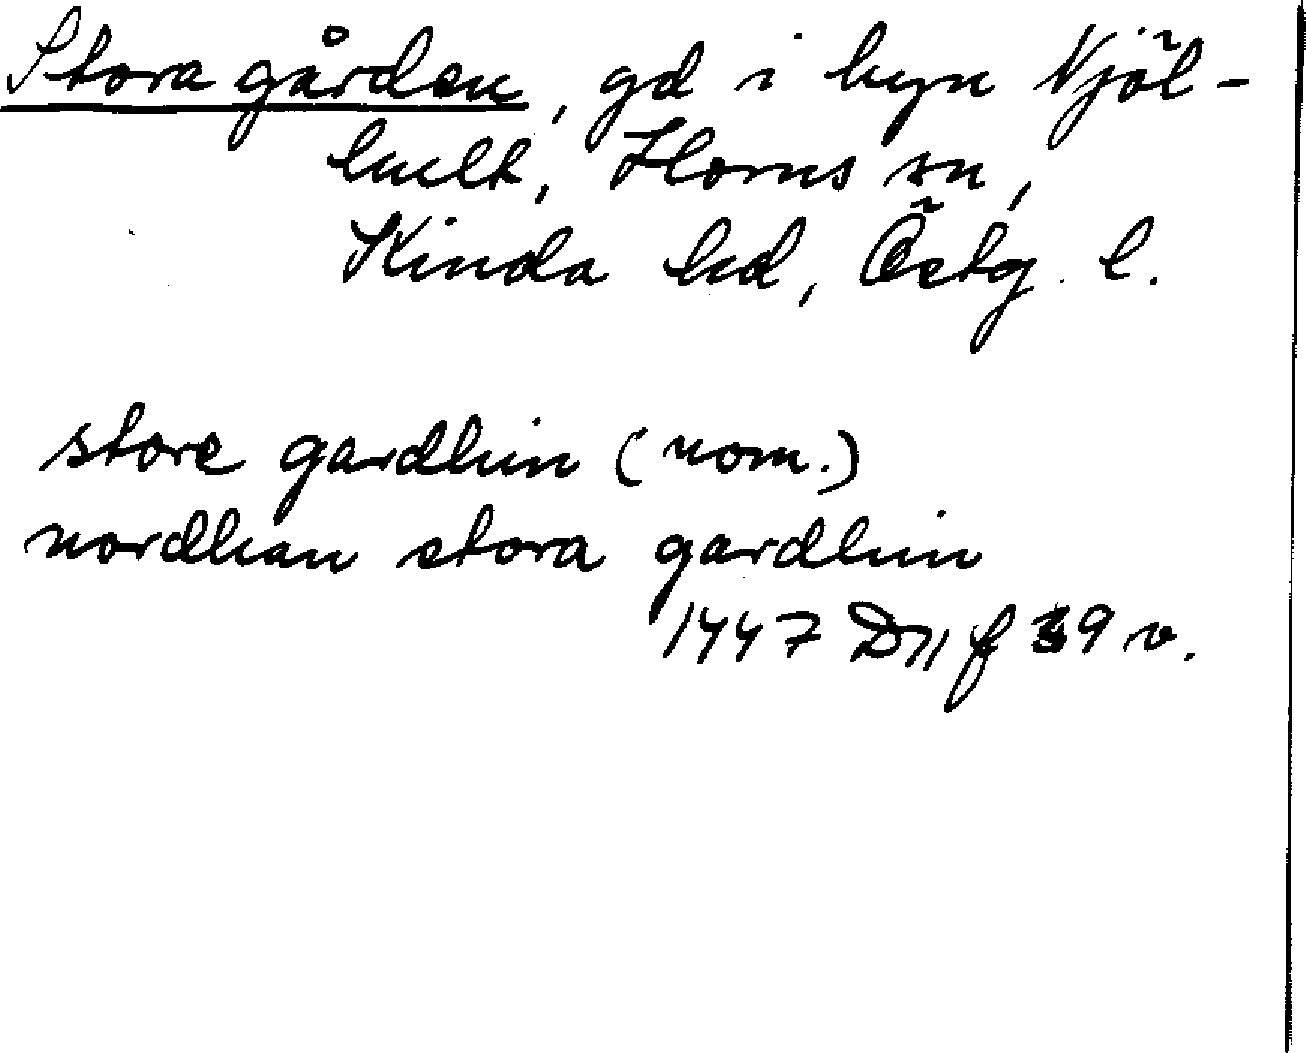 Stora gården, gd i byn Njöl-
hult, Horns sn,
Kinda hd, Östg. l.
store gardhin (nom.)
nordhan stora gardhin
1447 D11 f 39 v.